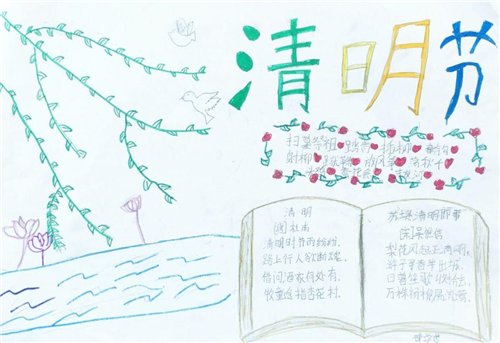 清明节
扫墓祭祖 踏青 插柳
射柳 放风筝 荡秋千
清明
[唐]杜甫
清明时节雨纷纷,
路上行人欲断魂。
借问酒家何处有,
牧童遥指杏花村。
苏堤清明即事
[宋]吴惟信
梨花风起正清明,
游子寻春半出城。
日暮笙歌收拾去,
万株杨柳属流莺。